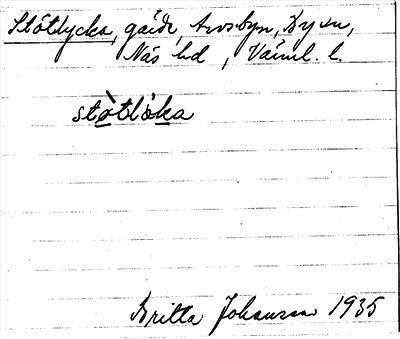 Stötlycka, gård, Arvsbyn, By sn,
Näs hd, Värml. l.
stòtlöka
Britta Johansson 1935